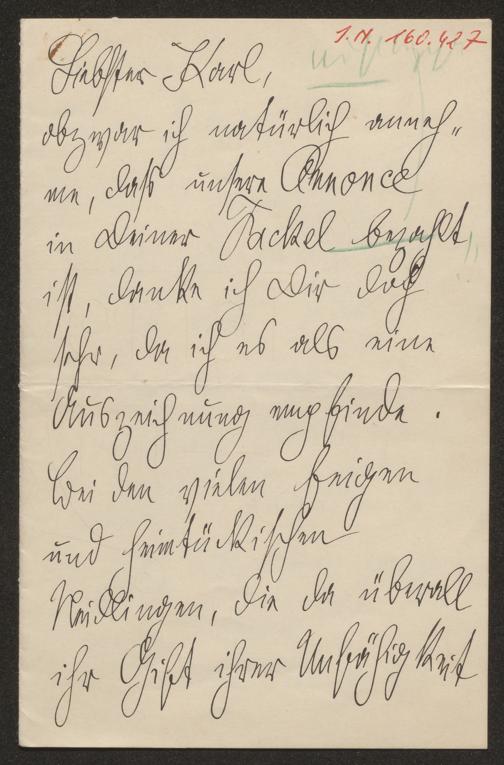 I.N. 160.427
Liebster Karl,
obzwar ich natürlich anneh-
me, dass unsere Annonce
in Deiner Fackel bezahlt
ist, danke ich Dir doch
sehr, da ich es als eine
Auszeichnung empfinde.
Bei den vielen feigen
und heimtückischen
Neidlingen, die da überall
ihr Gift ihrer Unfähigkeit